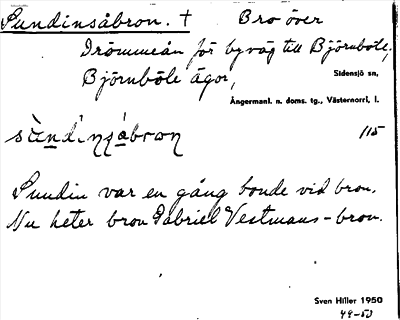 Sundinsåbron. † Bro över
Drömmeån för byväg till Björnböle,
Björnböle ägor,
Sidensjö sn,
Ångermanl. n. doms. tg., Västernorrl. l.
115
Sundin var en gång bonde vid bron.
Nu heter bron Gabriel Vestmans-bron.
Sven Hiller 1950
49-50